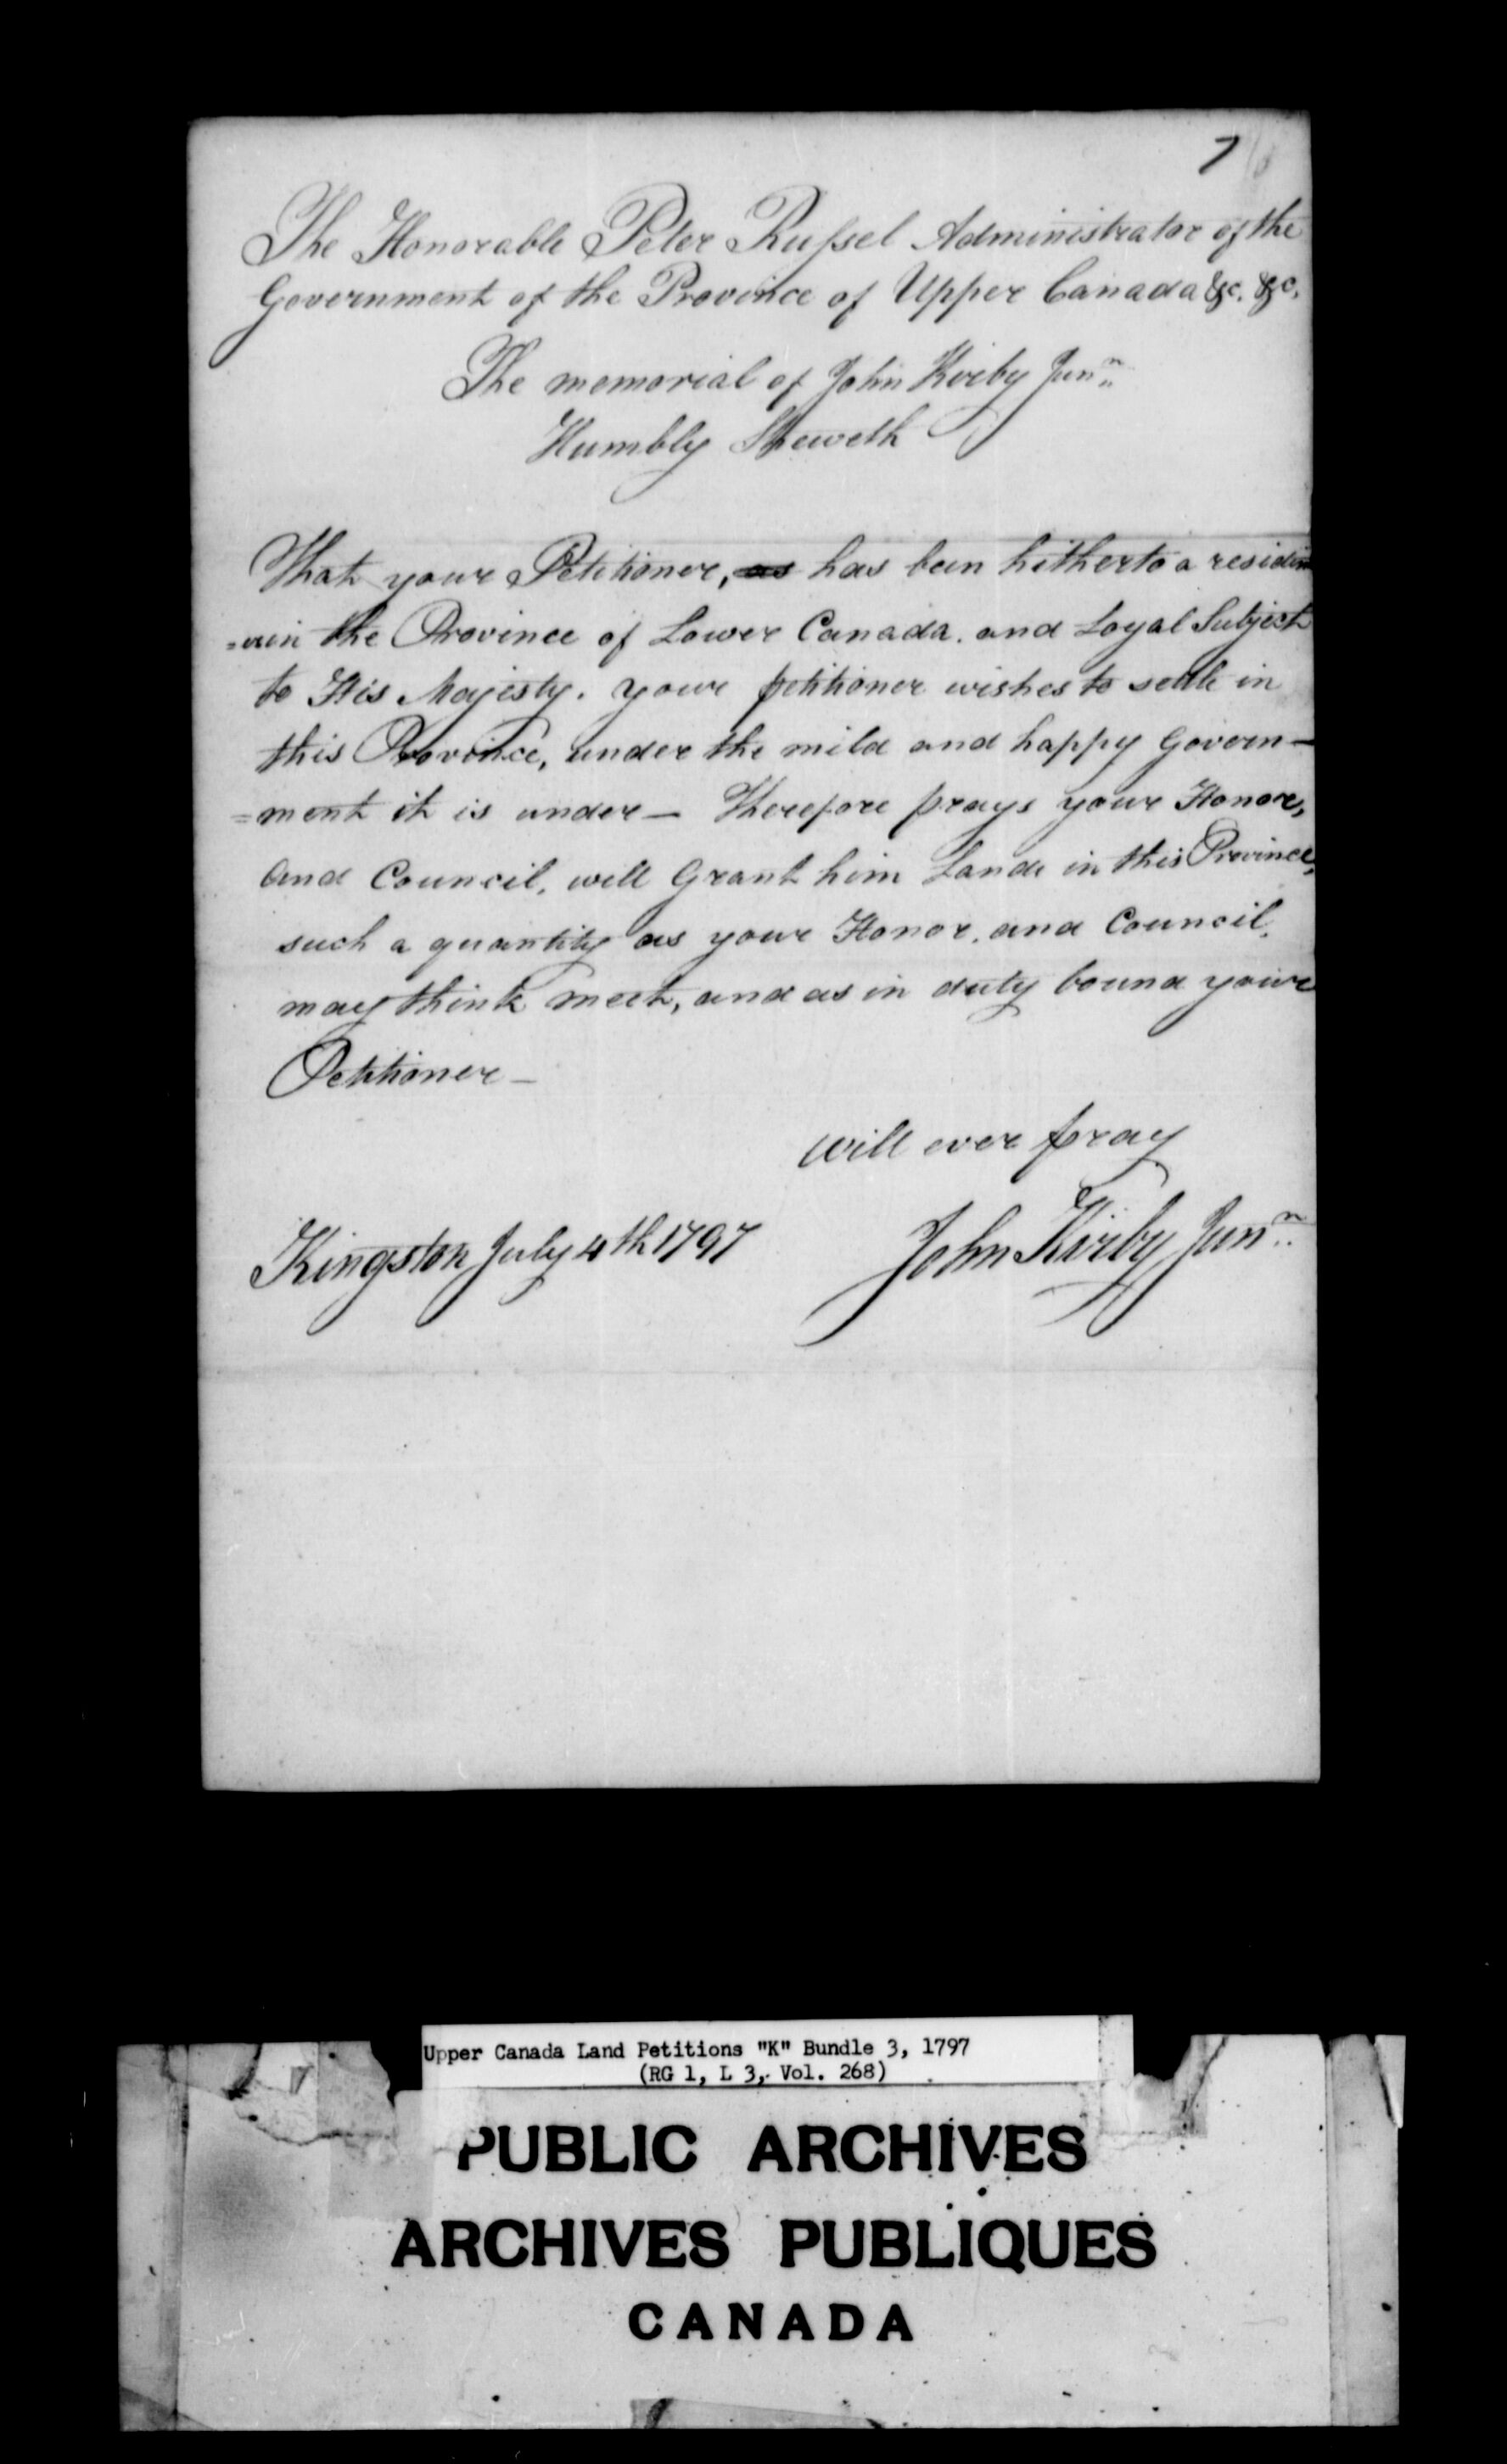 7
The Honorable Peter Rufsel Administrator of the
Government of the Province of Upper Canada &c. &c.
The memorial of John Kirby Junr
Humbly Sheweth
That your Petitioner, as has been hitherto a residin
=in the Province of Lower Canada. and Loyal Subject
to His Majesty. your petitioner wishes to settle in
this Province, under the mild and happy Govern-
=ment it is under— Therefore prays your Honor,
and Council, will Grant him Lands in this Province,
such a quantity as your Honor, and Council,
may think meet, and as in duty bound your
Petitioner—
will ever pray
Kingston July 4th 1797
John Kirby Junr
Upper Canada Land Petitions "K" Bundle 3, 1797
(RG 1, L 3, Vol. 268)
PUBLIC ARCHIVES
ARCHIVES PUBLIQUES
CANADA